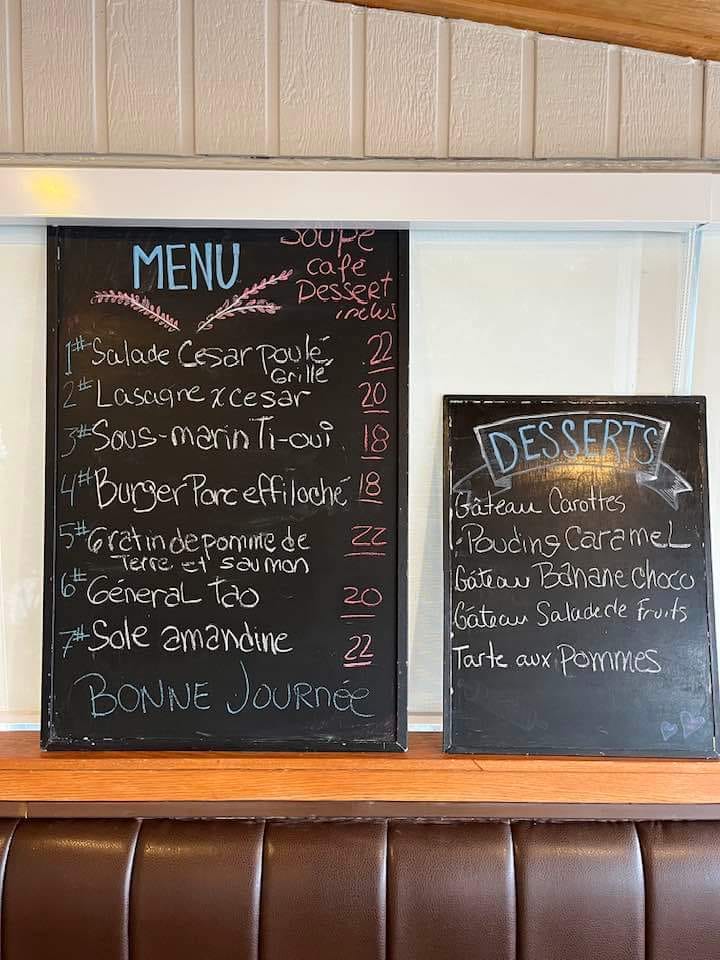 MENU
Soupe
café
Dessert
inclus
1# Salade Cesar poulé 22
Grillé
2# Lasagne x cesar 20
3# Sous-marin Ti-oui 18
4# Burger Porc effiloché 18
5# Gratin de pomme de 22
Terre et saumon
6# Géneral Tao 20
7# Sole amandine 22
BONNE JOURNÉE
DESSERTS
Gâteau Carottes
Pouding Caramel
Gâteau Banane Choco
Gâteau Salade de Fruits
Tarte aux pommes